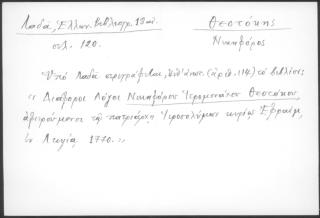 Λαδᾶ, Ἑλλην. Βιβλιογρ. 18 αἰ.
σελ. 120.
Θεοτόκης
Νικηφόρος
Ὑπὸ Λαδᾶ περιγράφεται, (ἀριθ. 114) τὸ βιβλίον:
"Διάφοροι Λόγοι Νικηφόρου Ἱερομονάχου Θεοτόκου,
ἀφιερούμενοι τῷ πατριάρχῃ Ἱεροσολύμων κυρίῳ Ἐφραίμ,
ἐν Λειψίᾳ 1770."